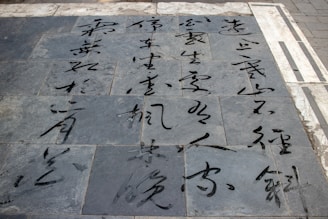 遠上寒山石徑斜
白雲生處有人家
停車坐愛楓林晚
霜葉紅於二月花